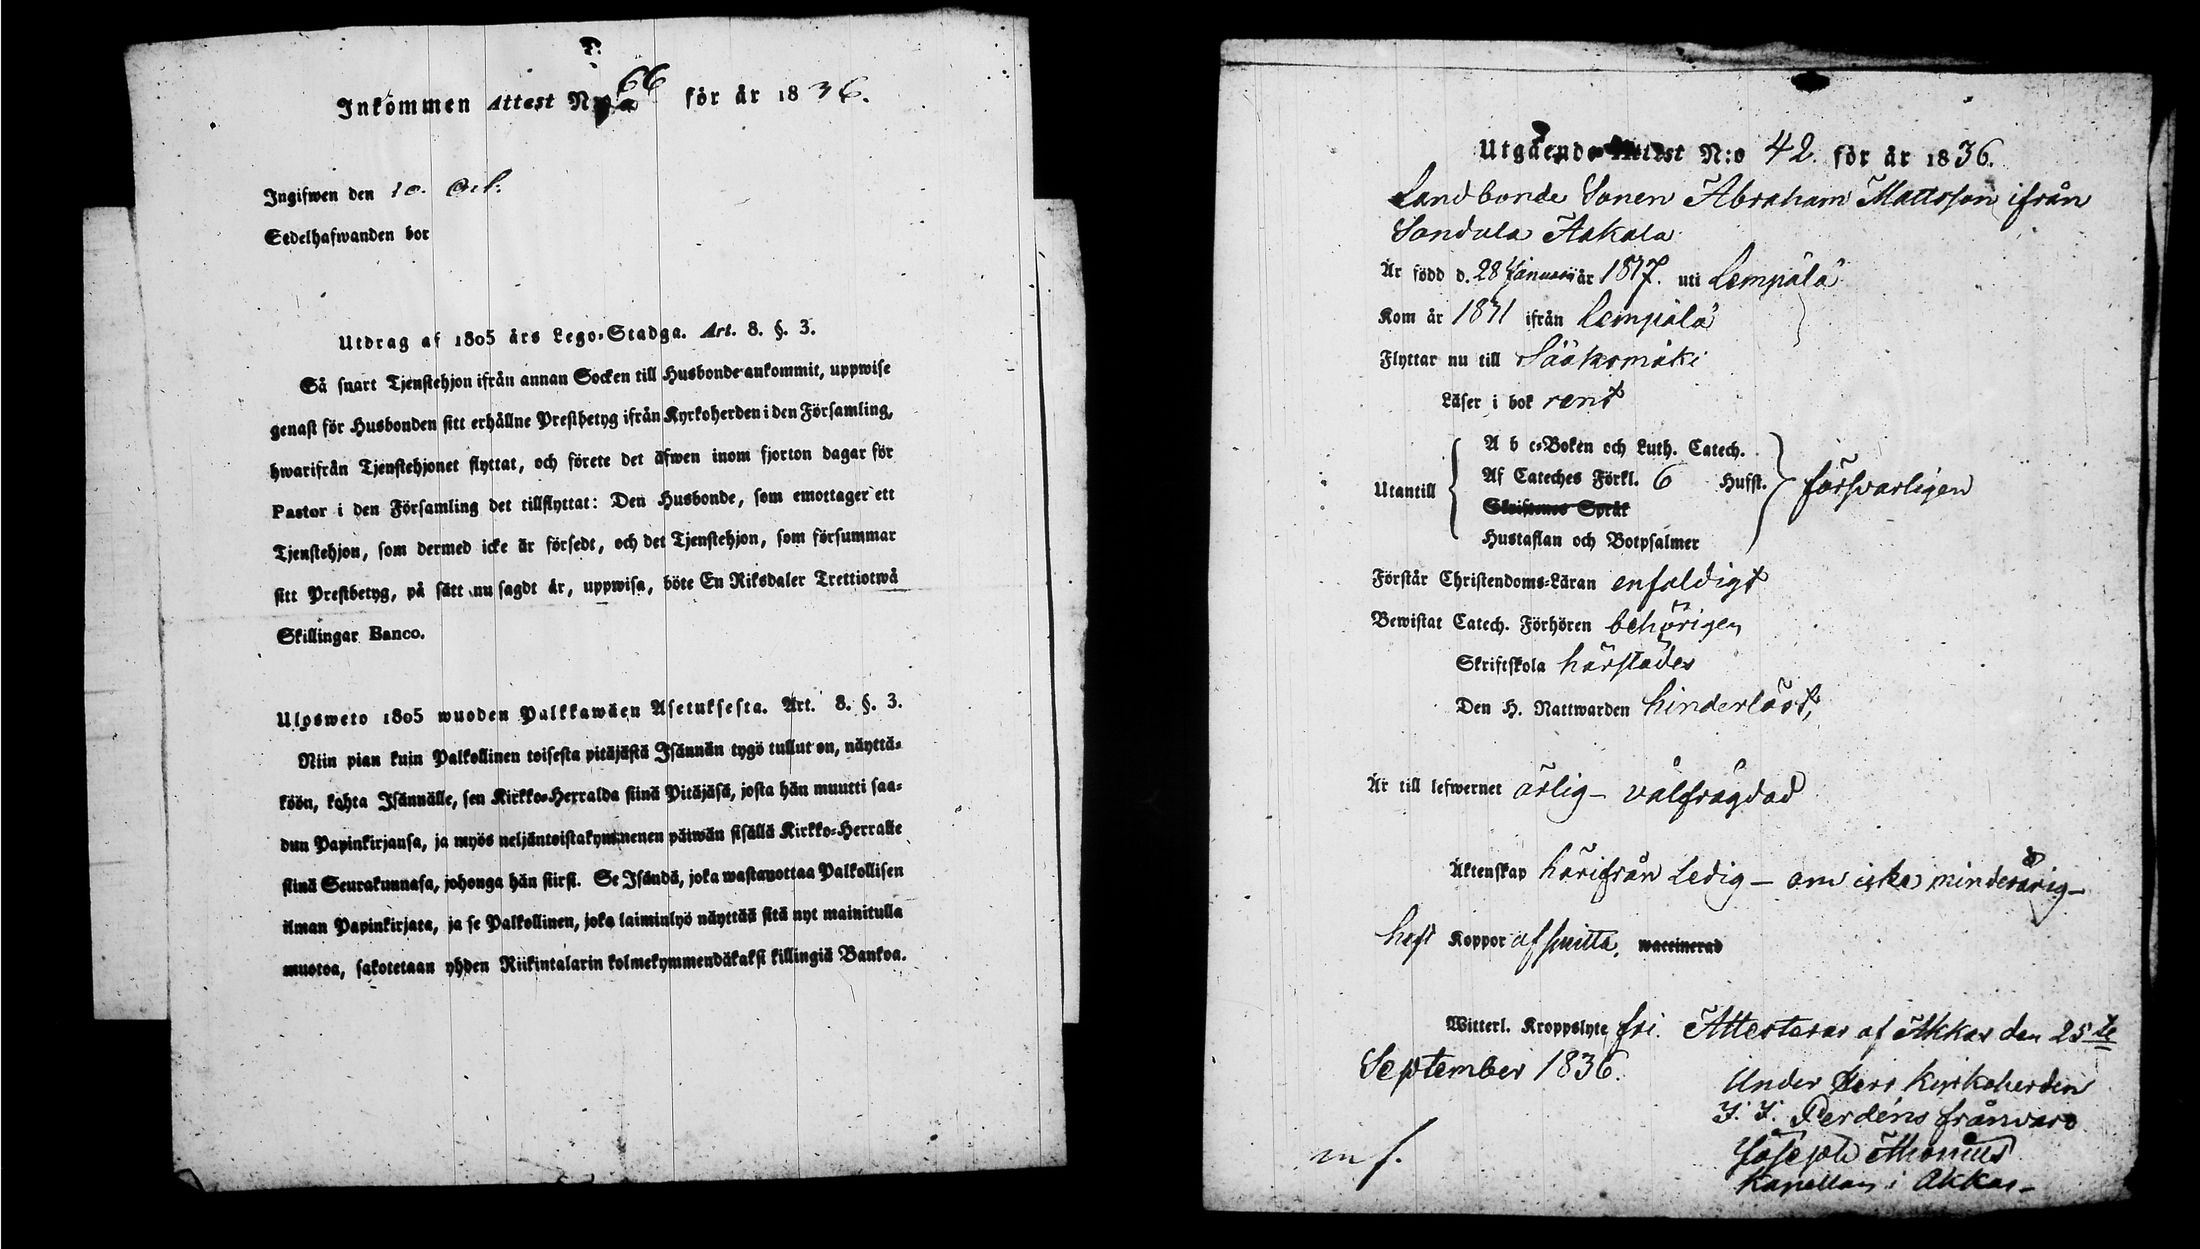 Inkommen Attest N:o 66 för år 1836.
Ingifwen den 10. Oct:
Sedelhafwanden bor
Utdrag af 1805 års Lego-Stadga. Art. 8. §. 3.
Så snart Tjenstehjon ifrån annan Socken till Husbonde ankommit, uppwise
genast för Husbonden sitt erhållne Prestbetyg ifrån Kyrkoherden i den Församling,
hwarifrån Tjenstehjonet flyttat, och förete det äfwen inom fjorton dagar för
Pastor i den Församling det tillflyttat: Den Husbonde, som emottager ett
Tjenstehjon, som dermed icke är försedt, och det Tjenstehjon, som försummar
sitt Prestbetyg, på sätt nu sagdt är, uppwisa, böte En Riksdaler Trettiotwå
Skillingar Banco.
Ulosweto 1805 wuoden Palkkawäen Asetuksesta. Art. 8. §. 3.
Niin pian kuin Palkollinen toisesta pitäjästä Isännän tygö tullut on, näyttä-
köön, kohta Isännälle, sen Kirkko-Herralda siinä Pitäjäsä, josta hän muutti saa-
dun Papinkirjansa, ja myös neljäntoistakymmenen päiwän sisällä Kirkko-Herralle
siinä Seurakunnasa, johonga hän siirsi. Se Isändä, joka wastanottaa Palkollisen
ilman Papinkirjata, ja se Palkollinen, joka laiminlyö näyttää sitä nyt mainitulla
muotoa, sakotetaan yhden Riikintalarin kolmekymmendäkaksi killingiä Bankoa.
Utgående Attest N:o 42. för år 1836.
Landbonde Sonen Abraham Mattsson ifrån
Sondula Aakala
Är född d. 28 Januarii år 1817. uti Lempälä
Kom år 1831 ifrån Lempälä
Flyttar nu till Sääksmäki
Läser i bok rent
Utantill
A b c-Boken och Luth. Catech.
Af Cateches Förkl. 6 Hufst. försvarligen
Skriftenes Språk
Hustaflan och Botpsalmer
Förstår Christendoms-Läran enfaldigt
Bewistat Catech. Förhören behörigen
Skriftskola härstädes
Den H. Nattwarden hinderlöst,
Är till lefwernet ärlig - välfrägdad
Äktenskap härifrån Ledig - om icke minderårig -
haft Koppor af smitta, waccinerad
Witterl. Kroppslyte fri. Attesterar af Akkas den 25te
September 1836.
Under Herr Kyrkoherden
J. J. Perdéns frånvaro
Joseph
Kapellan i Akkas -